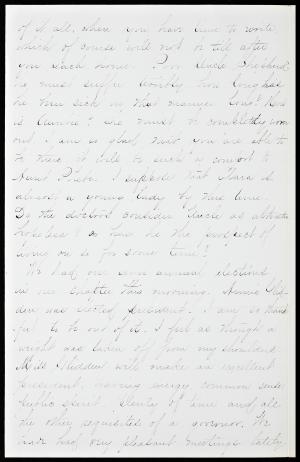 of it all, when you have time to write
which of course will not be till after
you reach home. Poor Uncle Shepherd
he must suffer terribly how long has
he been sick in that manner and? How
is Auntie? she must be completely worn
out. I am so glad that you are able to
be there it will be such a comfort to
Aunt Phebe. I suppose that Clara is
almost a young lady by this time.
Do the doctors consider Uncle as absolutely
hopeless? or has he the prospect of
living on so for some time?
We had our own annual elections
in our chapter this morning. Annie
was elected president. I am so thank
ful to be out of it. I feel as though a
weight was taken off from my shoulders.
Miss will make an excellent
president, having energy, common sense,
public spirit, plenty of time and all
the other requisites of a governor. We
have had very pleasant meetings lately,